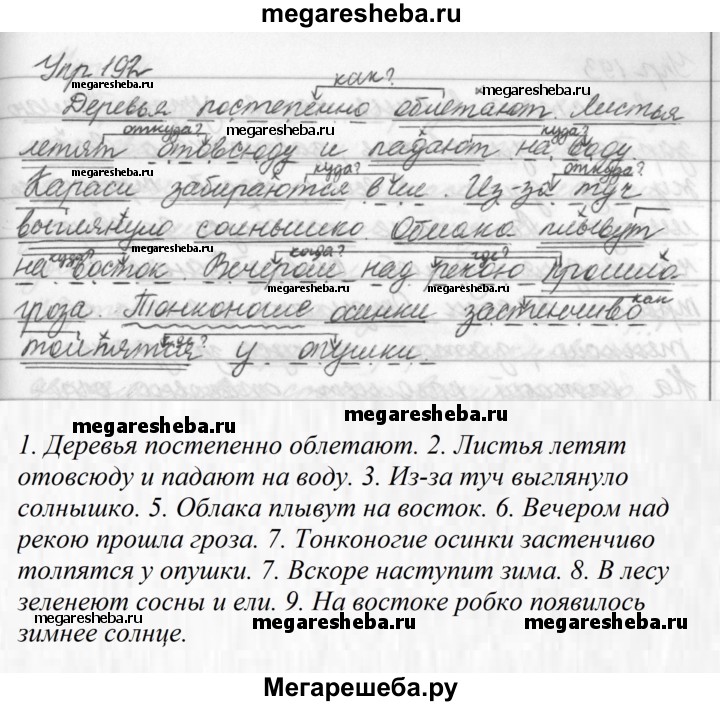 megaresheba.ru
Упр 192
как?
Деревья постепенно облетают. Листья
откуда? куда?
летят отовсюду и падают на воду.
куда? откуда?
Караси забираются в ил. Из-за туч
выглянуло солнышко. Облака плывут
куда? когда? где?
на восток. Вечером над рекою прошла
гроза. Тонконогие осинки застенчиво
как
толпятся у опушки.
megaresheba.ru
megaresheba.ru
megaresheba.ru
megaresheba.ru
megaresheba.ru
megaresheba.ru
megaresheba.ru
megaresheba.ru
megaresheba.ru
megaresheba.ru
megaresheba.ru
1. Деревья постепенно облетают. 2. Листья летят
отовсюду и падают на воду. 3. Из-за туч выглянуло
солнышко. 5. Облака плывут на восток. 6. Вечером над
рекою прошла гроза. 7. Тонконогие осинки застенчиво
толпятся у опушки. 7. Вскоре наступит зима. 8. В лесу
зеленеют сосны и ели. 9. На востоке робко появилось
зимнее солнце.
megaresheba.ru
megaresheba.ru
megaresheba.ru
Мегарешеба.ру